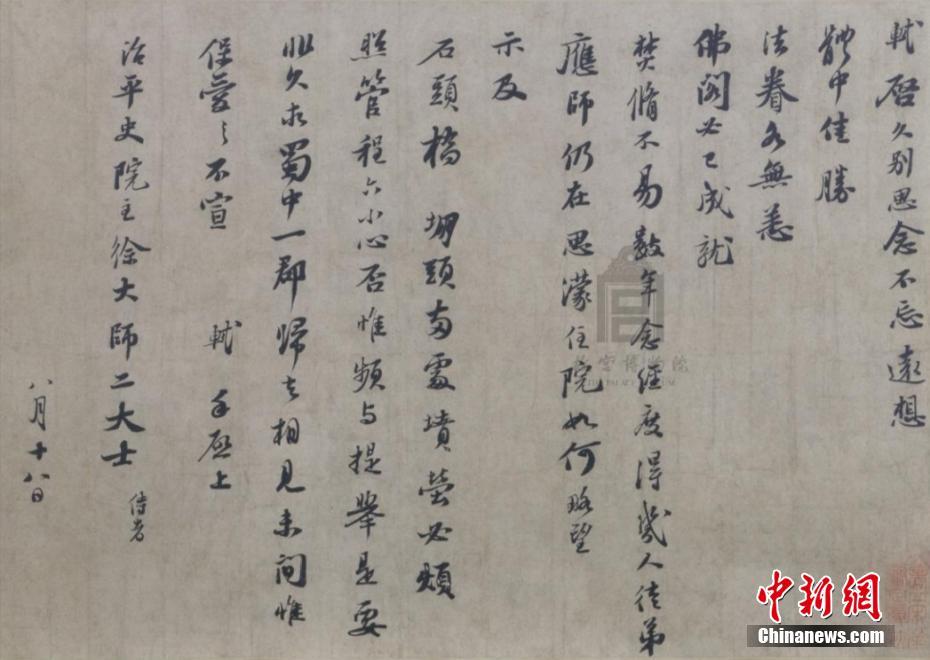 軾啓久別思念不忘遠想
體中佳勝
法眷各無恙
佛閣必已成就
焚脩不易數年念經度得幾人徒弟
應師仍在思濛住院如何略望
示及
石頭橋 堋頭兩處墳塋必煩
照管程六小心否惟頻与提舉是要
非久求蜀中一郡歸去相見未間惟
保愛之不宣 軾 手啟上
治平史院主徐大師二大士 侍者
八月十八日
故宫博物院
THE PALACE MUSEUM
中新網
Chinanews.com